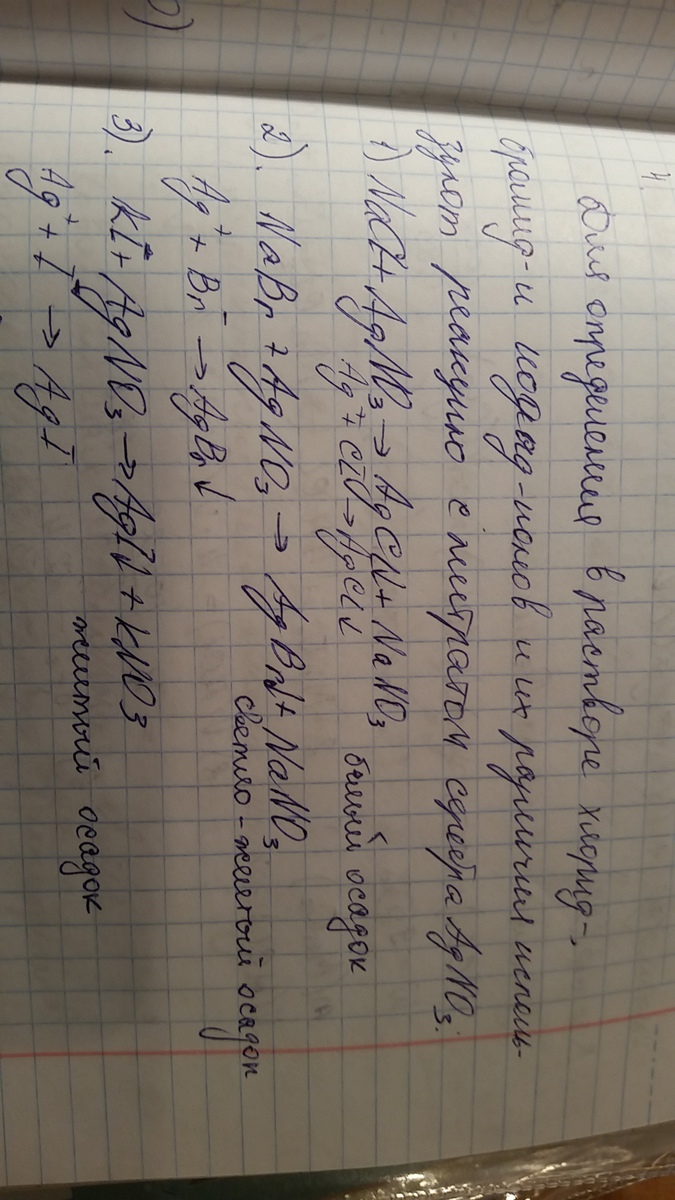 4.
Для определения в растворе хлорид-,
бромид- и иодид-ионов и их различия исполь-
зуют реакцию с нитратом серебра AgNO₃.
1) NaCl + AgNO₃ → AgCl↓ + NaNO₃
Ag⁺ + Cl⁻ → AgCl↓ белый осадок
2). NaBr + AgNO₃ → AgBr↓ + NaNO₃
Ag⁺ + Br⁻ → AgBr↓ светло-желтый осадок
3). KI + AgNO₃ → AgI↓ + KNO₃
Ag⁺ + I⁻ → AgI желтый осадок